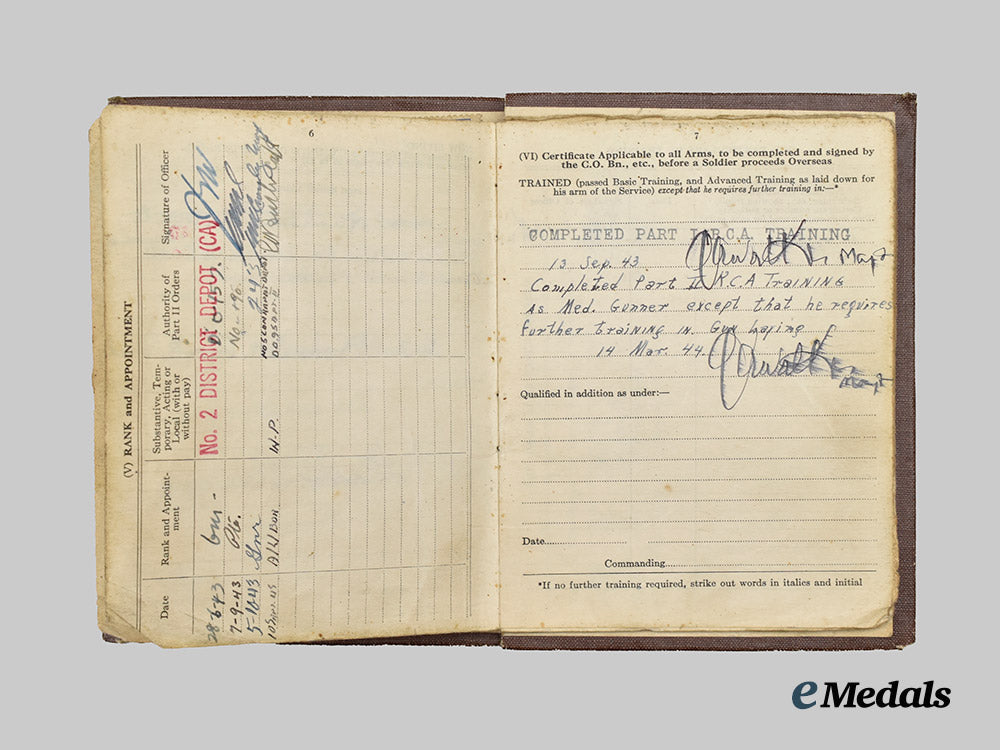 6
(V) RANK and APPOINTMENT
Date
Rank and Appoint-
ment
Substantive, Tem-
porary, Acting or
Local (with or
without pay)
Authority of
Part II Orders
Signature of Officer
28-6-43
No. 2 DISTRICT DEPOT (CA)
7-9-43 Pte.
5-10-43 Gnr
A/L/BDR W.P.
7
(VI) Certificate Applicable to all Arms, to be completed and signed by
the C.O. Bn., etc., before a Soldier proceeds Overseas
TRAINED (passed Basic Training, and Advanced Training as laid down for
his arm of the Service) except that he requires further training in:—*
COMPLETED PART I R.C.A. TRAINING
13 Sep. 43. Major
Completed Part II R.C.A Training
As Med. Gunner except that he requires
further training in Gun Laying
14 Mar. 44. Major
Qualified in addition as under:—
Date
Commanding
*If no further training required, strike out words in italics and initial
eMedals